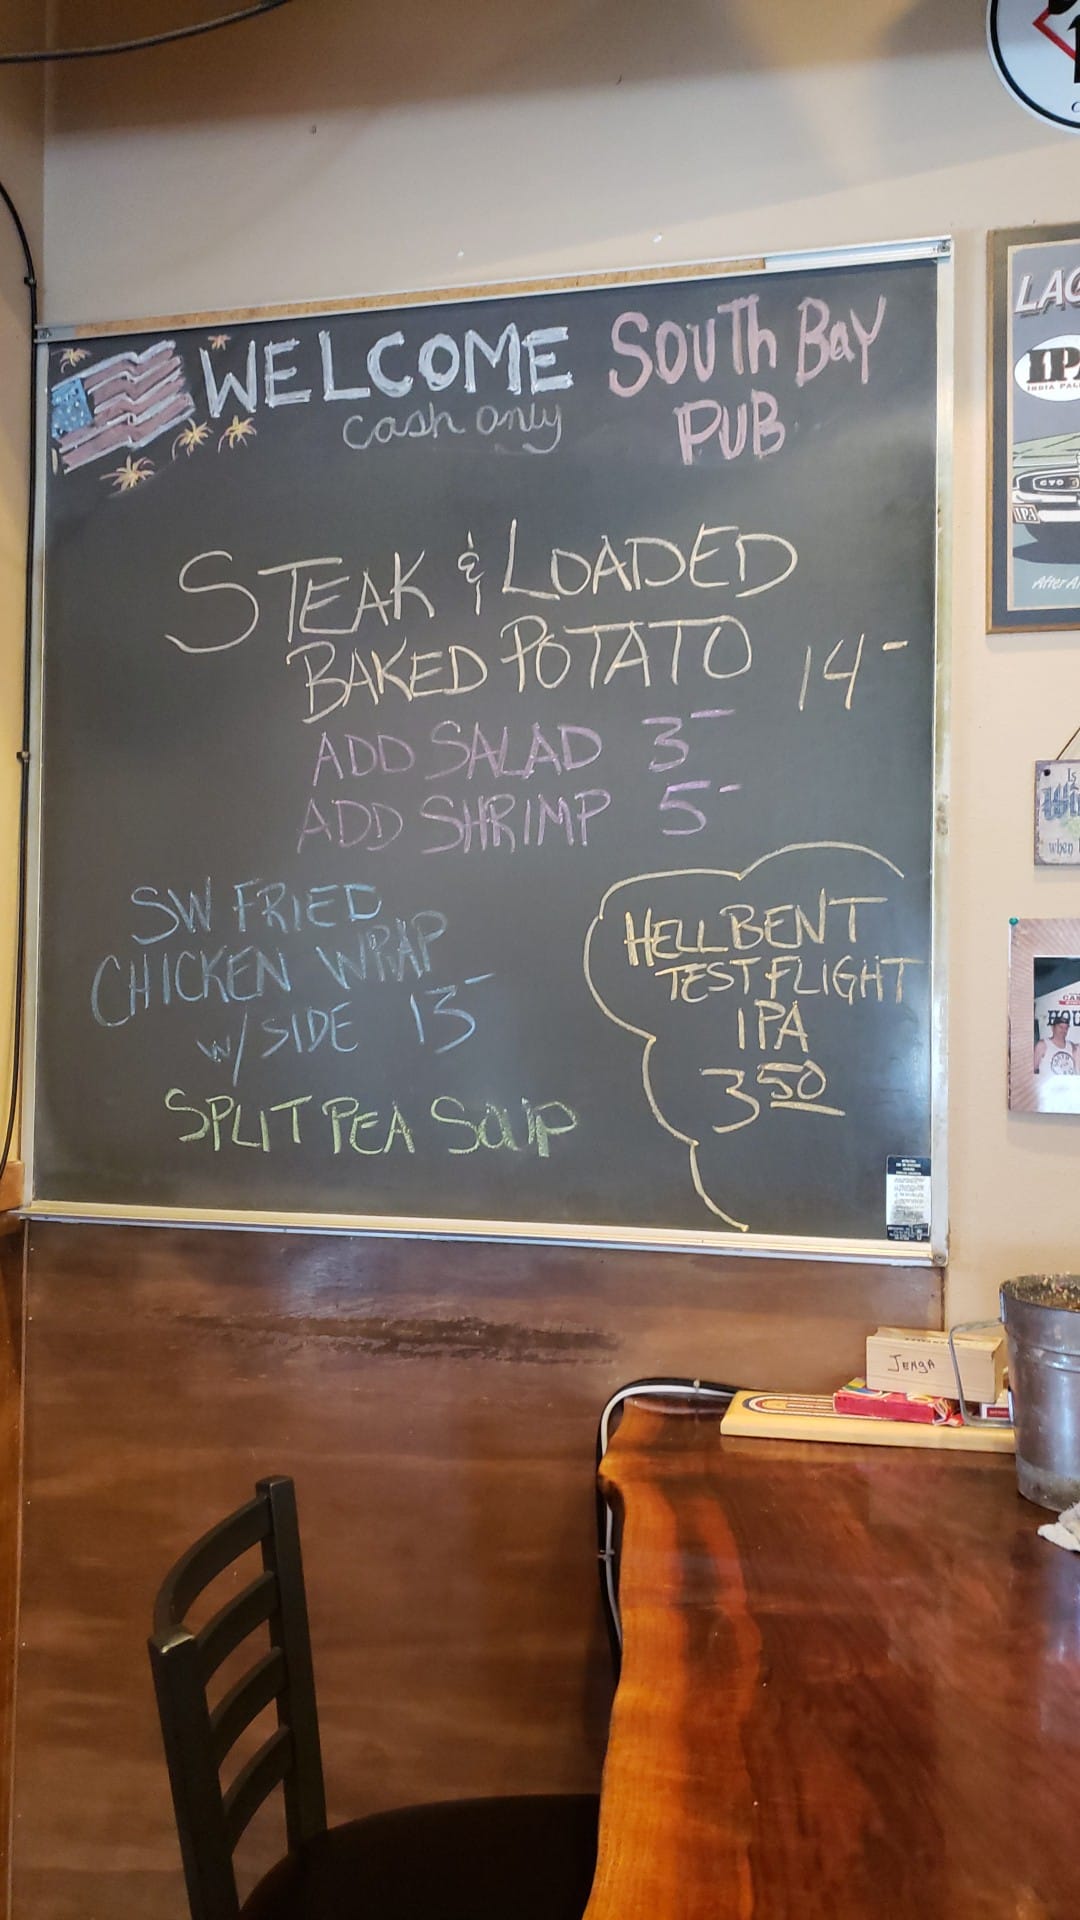 WELCOME SOUTH BAY
cash only PUB
STEAK & LOADED
BAKED POTATO 14-
ADD SALAD 3-
ADD SHRIMP 5-
SW FRIED
CHICKEN WRAP
W/ SIDE 13-
SPLIT PEA SOUP
HELLBENT
TEST FLIGHT
IPA
3 50
LAG
IPA
INDIA PAL
GTO
IPA
After A
Is
when
HOU
JENGA